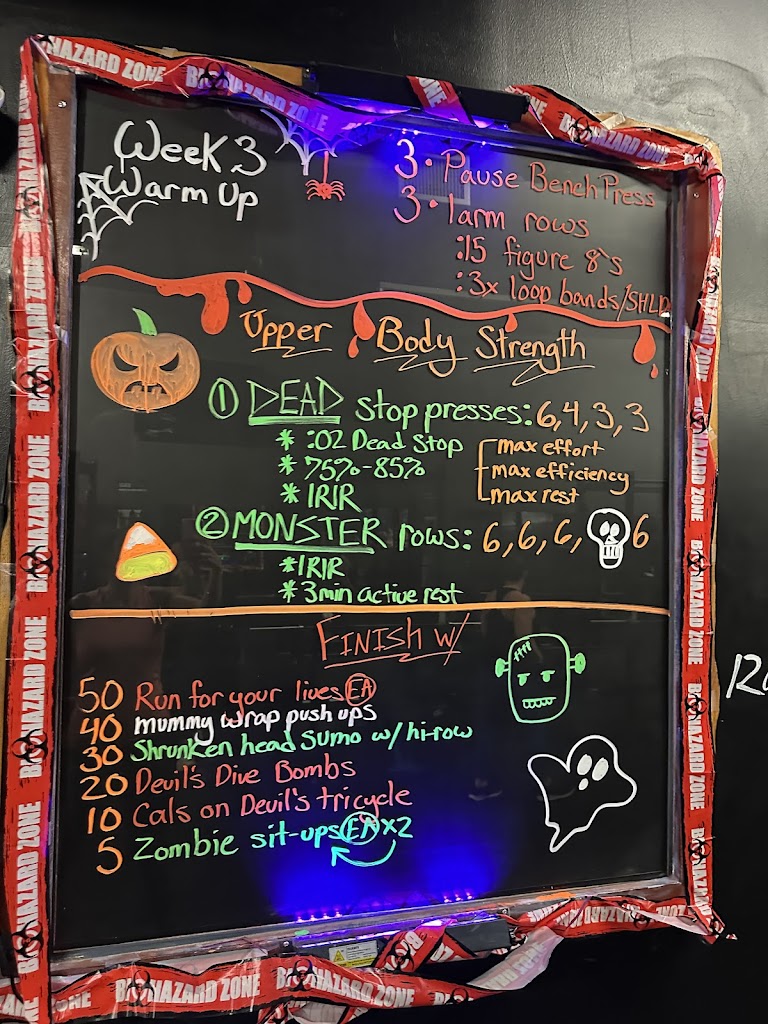 BIOHAZARD ZONE
Week 3
Warm Up
3 • Pause Bench Press
3 • 1arm rows
:15 figure 8's
:3x loop bands/SHLD
Upper Body Strength
① DEAD stop presses: 6,4,3,3
* :02 Dead Stop
* 75%-85%
* 1RIR
max effort
max efficiency
max rest
② MONSTER rows: 6,6,6, 6
*1RIR
* 3min active rest
FINISH w/
50 Run for your lives EA
40 mummy wrap push ups
30 Shrunken head Sumo w/ hi-row
20 Devil's Dive Bombs
10 Cals on Devil's tricycle
5 Zombie sit-ups EA x2